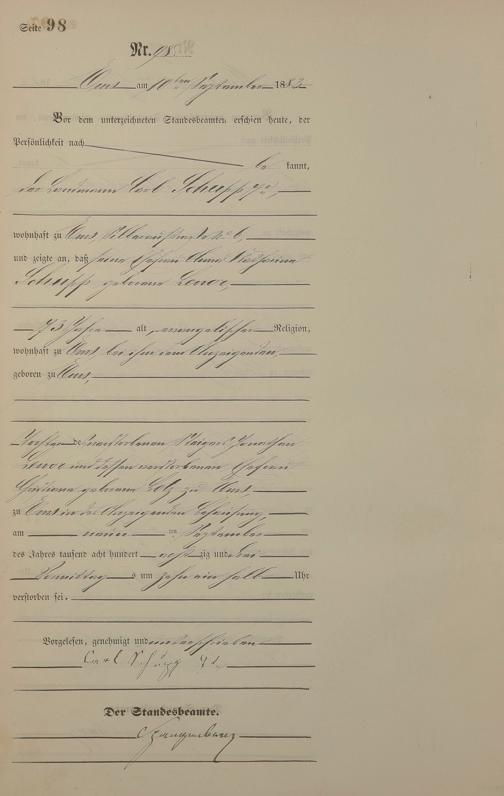 Seite 98
Nr. 98
Ems am 10ten September 1883
Vor dem unterzeichneten Standesbeamten erschien heute, der
Persönlichkeit nach
be kannt,
der Carl Schupp
wohnhaft zu Ems, No 6,
und zeigte an, daß seine Ehefrau Anna Katharina
Schupp geborene
73 Jahre alt, evangelischer Religion,
wohnhaft zu Ems bei ihm dem Anzeigenden,
geboren zu Ems,
Tochter des verstorbenen
und dessen verstorbenen Ehefrau
Christiana geborene zu Ems,
zu Ems in des Anzeigenden Behausung,
am neunten September
des Jahres tausend acht hundert acht zig und drei
Vormittags um zehn ein halb Uhr
verstorben sei.
Vorgelesen, genehmigt und unterschrieben
Carl Schupp
Der Standesbeamte.